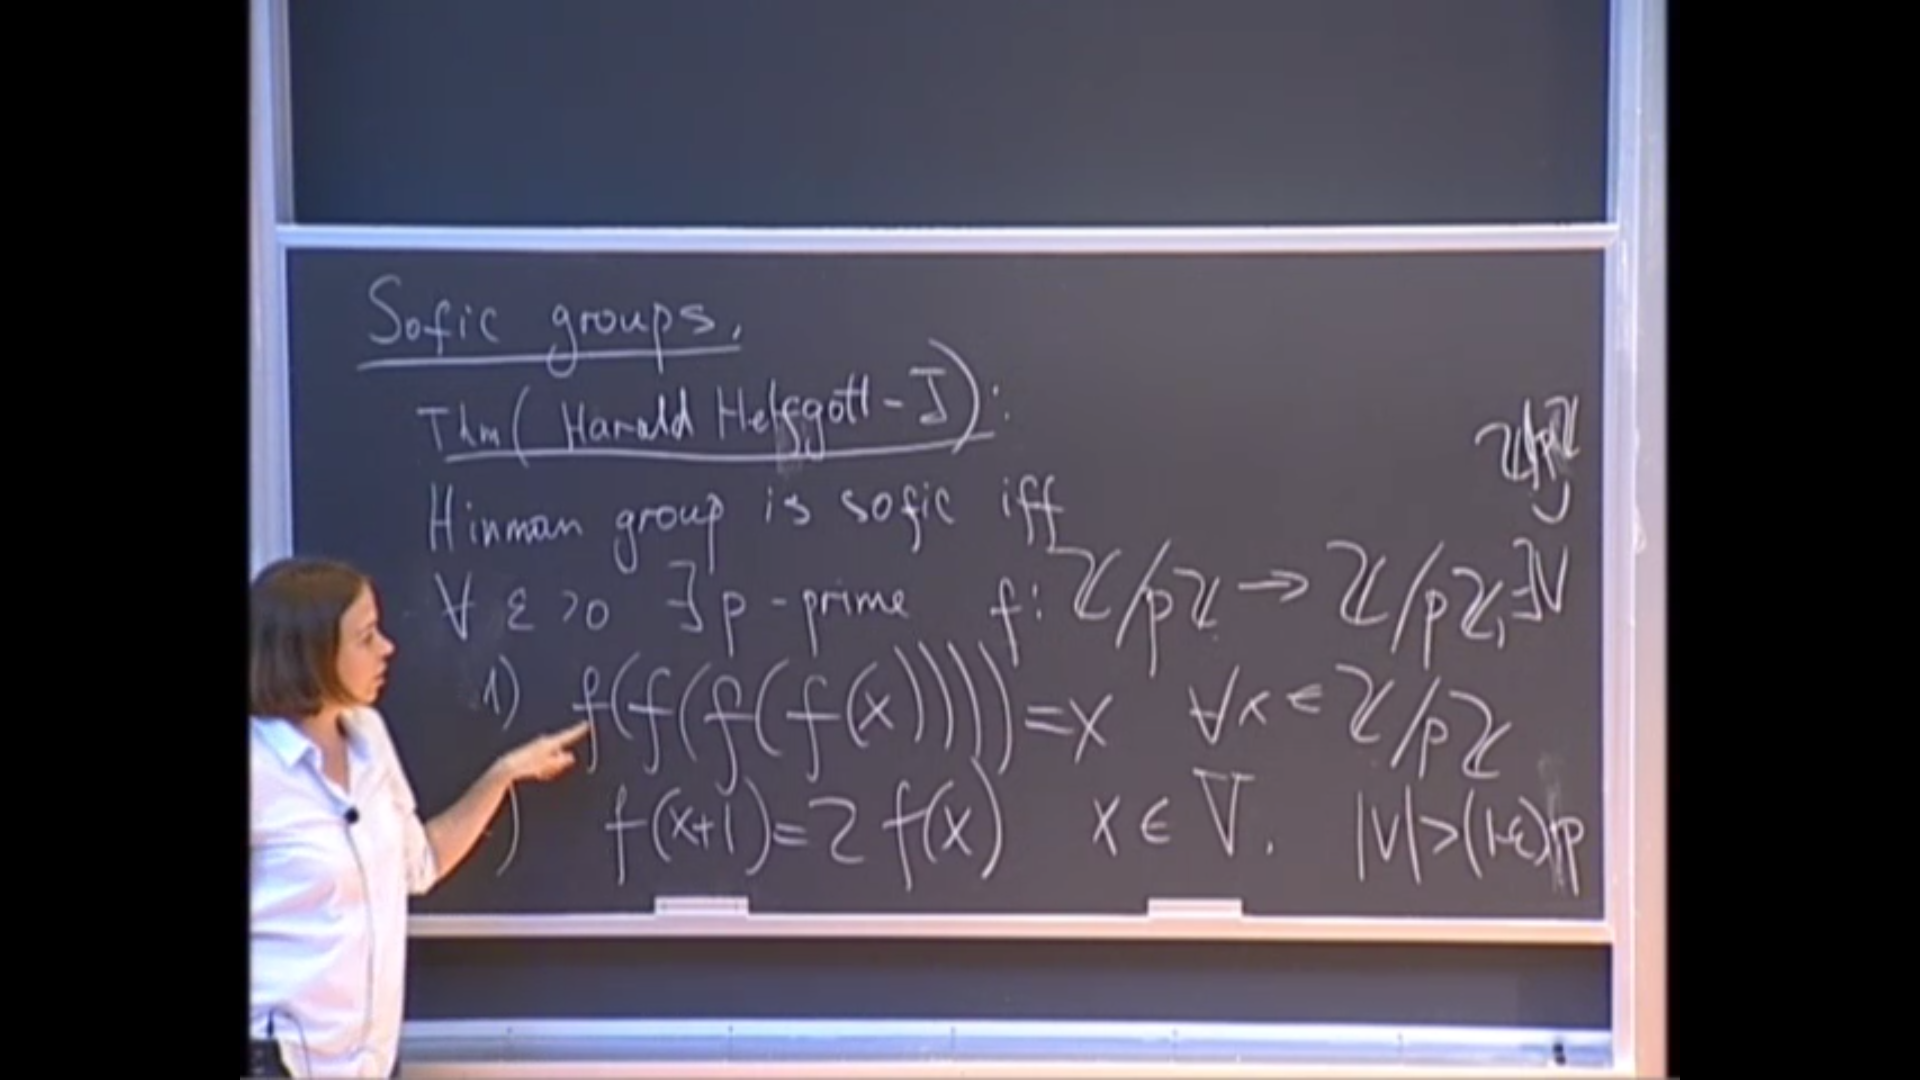 Sofic groups.
Thm (Harald Helfgott - J):
Hinman group is sofic iff
∀ ε > 0 ∃ p - prime f: ℤ/pℤ → ℤ/pℤ, ∃V
1) f(f(f(f(x)))) = x ∀x ∈ ℤ/pℤ
) f(x+1) = 2 f(x) x ∈ V. |V| > (1-ε)p